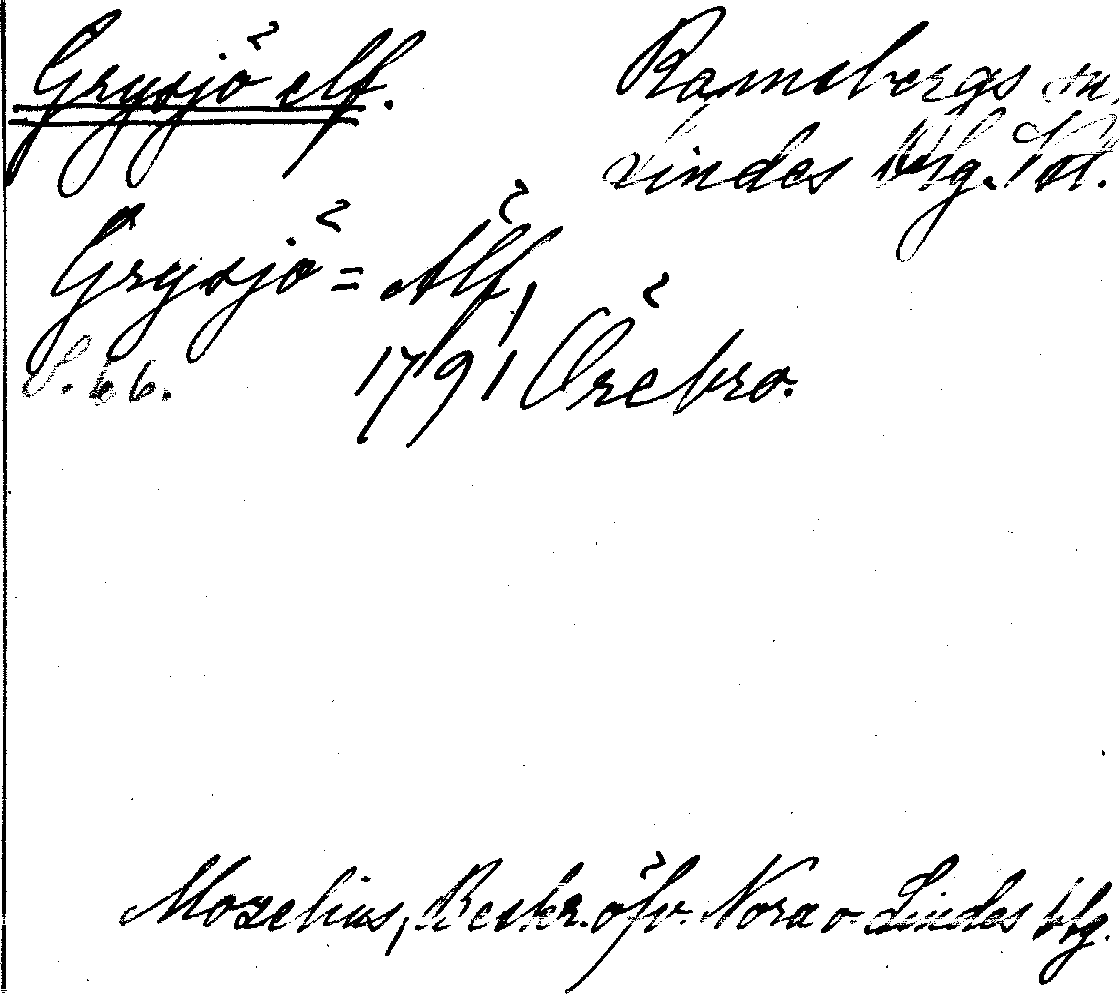 Grysjö elf.
Ramsbergs sn,
Lindes blg. Vstl.
Grysjö = Älf,
S. 66. 1791 Örebro.
Mozelius, Beskr. öfv. Nora o Lindes blg.